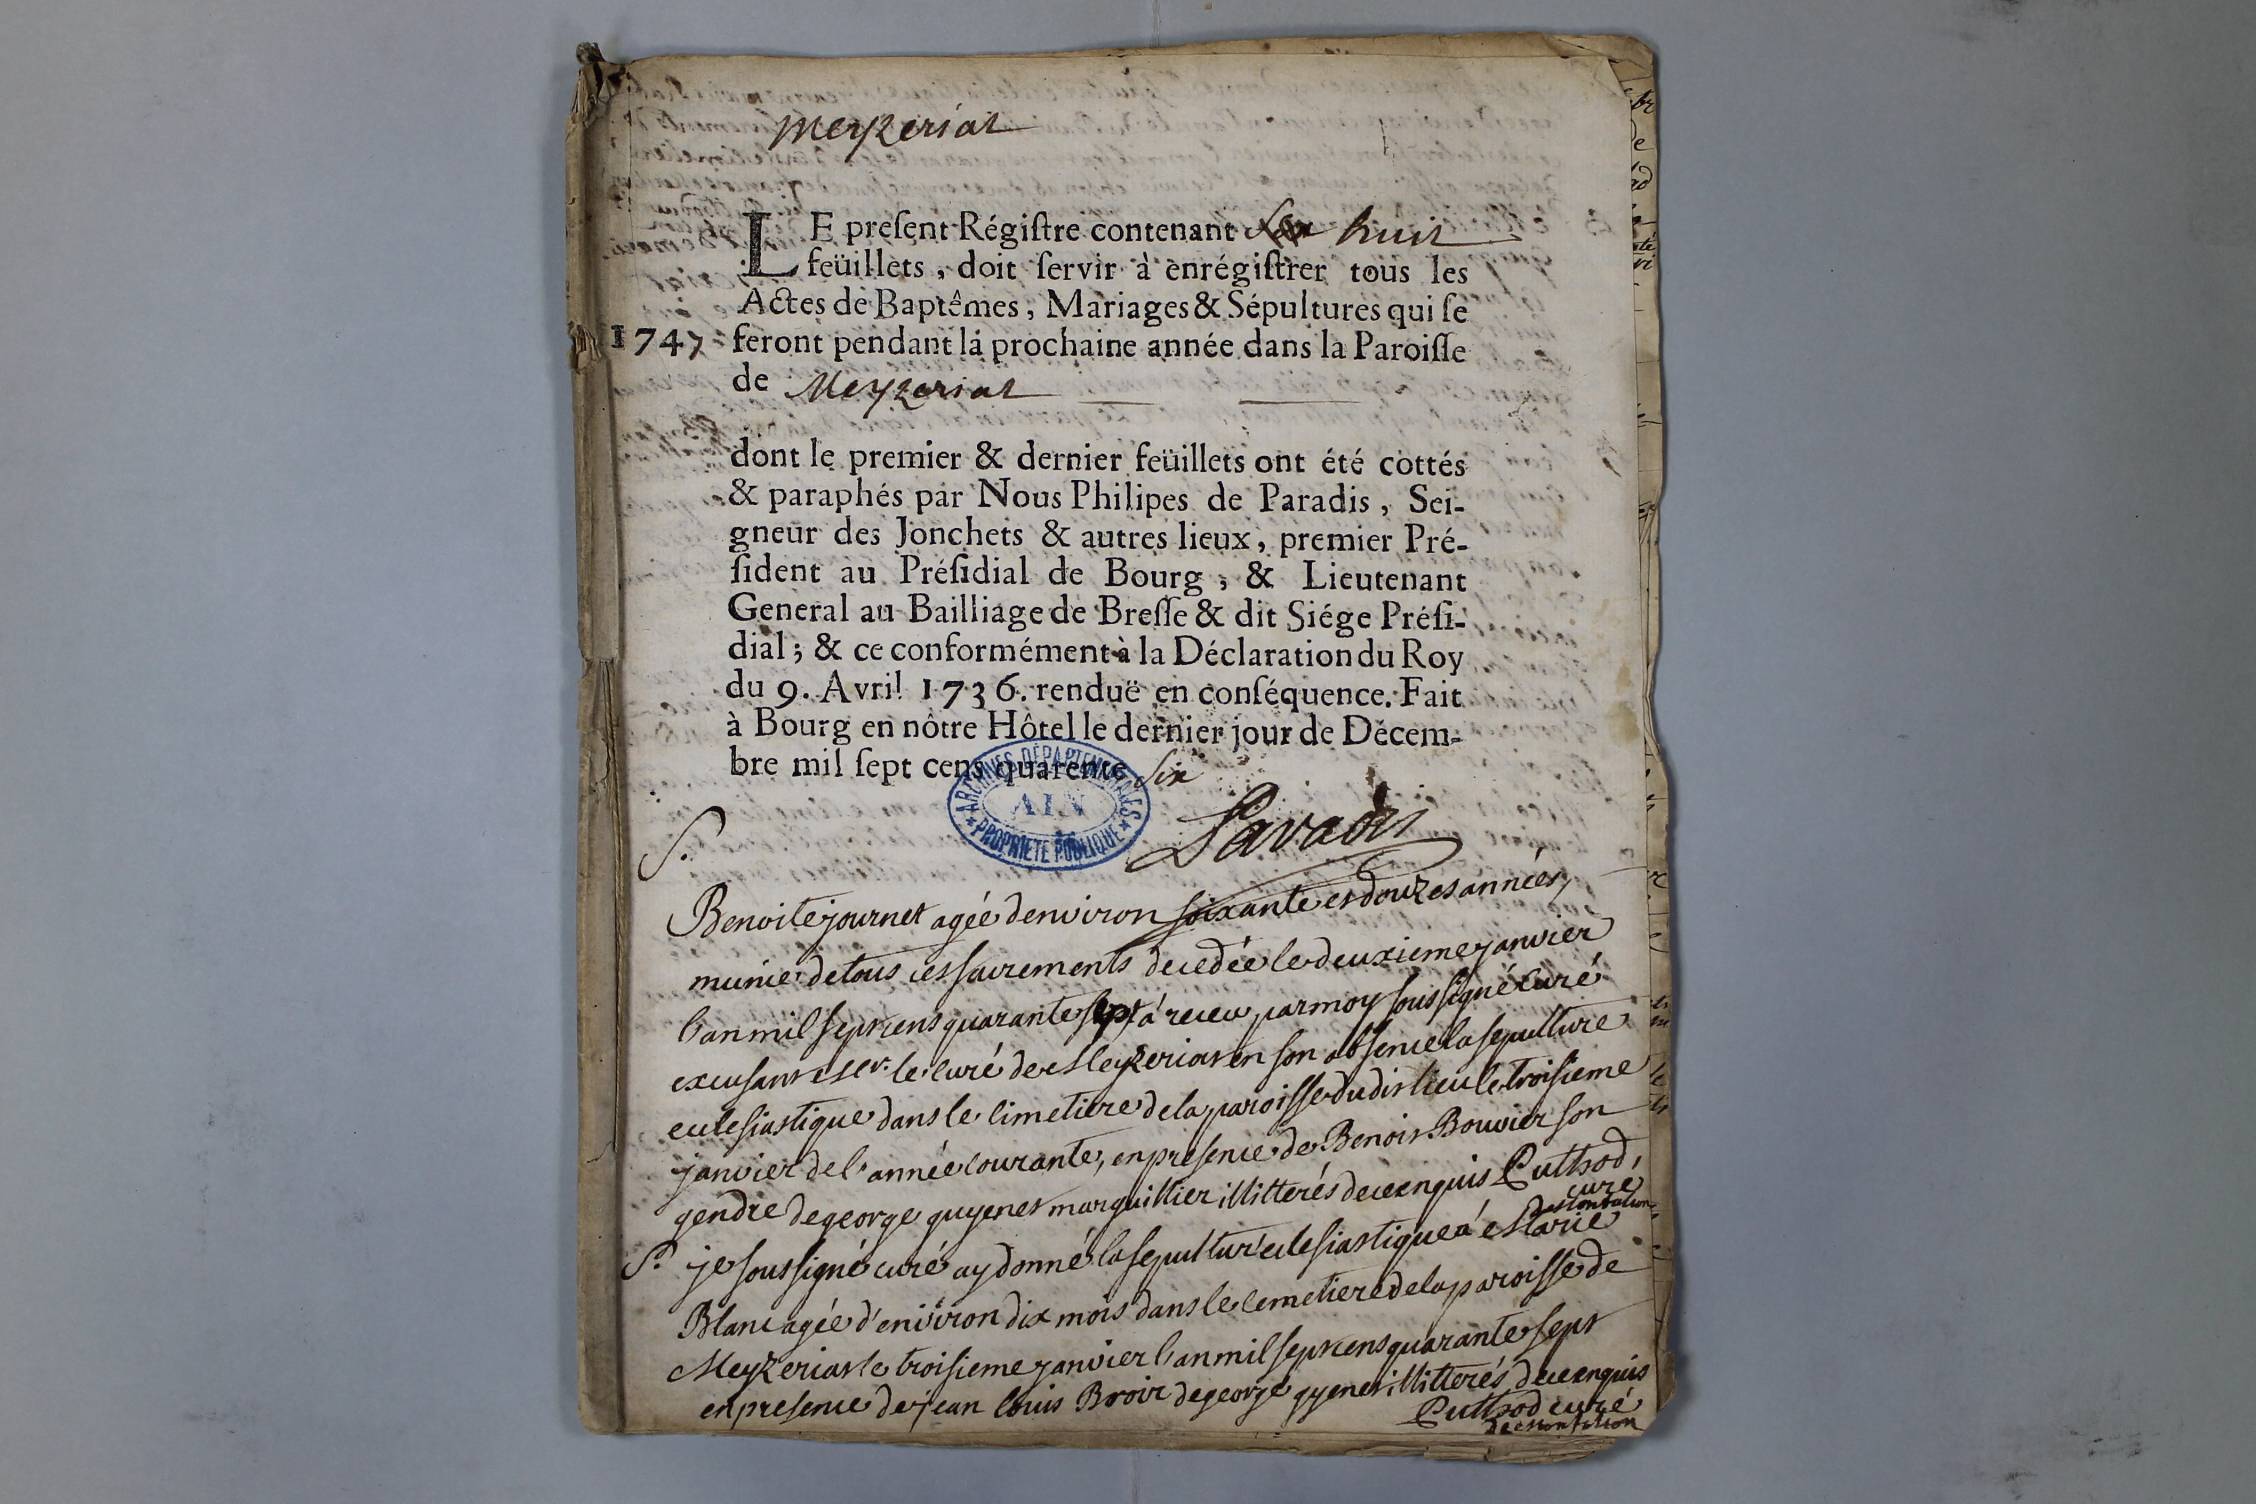 Meyzeriat
LE preſent Régiſtre contenant huit
feüillets, doit ſervir à enrégiſtrer tous les
Actes de Baptêmes, Mariages & Sépultures qui ſe
1747 feront pendant la prochaine année dans la Paroiſſe
de Meyzeriat
dont le premier & dernier feüillets ont été cottés
& paraphés par Nous Philipes de Paradis, Sei-
gneur des Jonchets & autres lieux, premier Pré-
ſident au Préſidial de Bourg, & Lieutenant
General au Bailliage de Breſſe & dit Siége Préſi-
dial; & ce conformément à la Déclaration du Roy
du 9. Avril 1736. renduë en conſéquence. Fait
à Bourg en nôtre Hôtel le dernier jour de Décem-
bre mil ſept cens quarente six
ARCHIVES DÉPARTEMENTALES
AIN
PROPRIÉTÉ PUBLIQUE
Paradis
S.
Benoite journet agée denviron soixante et douzes années,
munie de tous ces sacrements decedée le deuxieme janvier
l'an mil sept cens quarante sept a receu par moy soussigné curé
excusant Mr. le curé de Meyzeriat en son absence la sepulture
eclesiastique dans le cimetiere de la paroisse dudit lieu le troisieme
janvier de l'année courante, en presence de Benoit Bouvier son
gendre de george guyenet marguillier illitterés de ce enquis Puthod,
curé
S. je soussigné curé ay donné la sepultur eclesiastique a Marie
Blanc agée d'environ dix mois dans le cemetiere de la paroisse de
Meyzeriat le troisieme janvier l'an mil sept cens quarante sept
en presence de jean louis Broir de george gyenet illitterés de ce enquis
Puthod curé